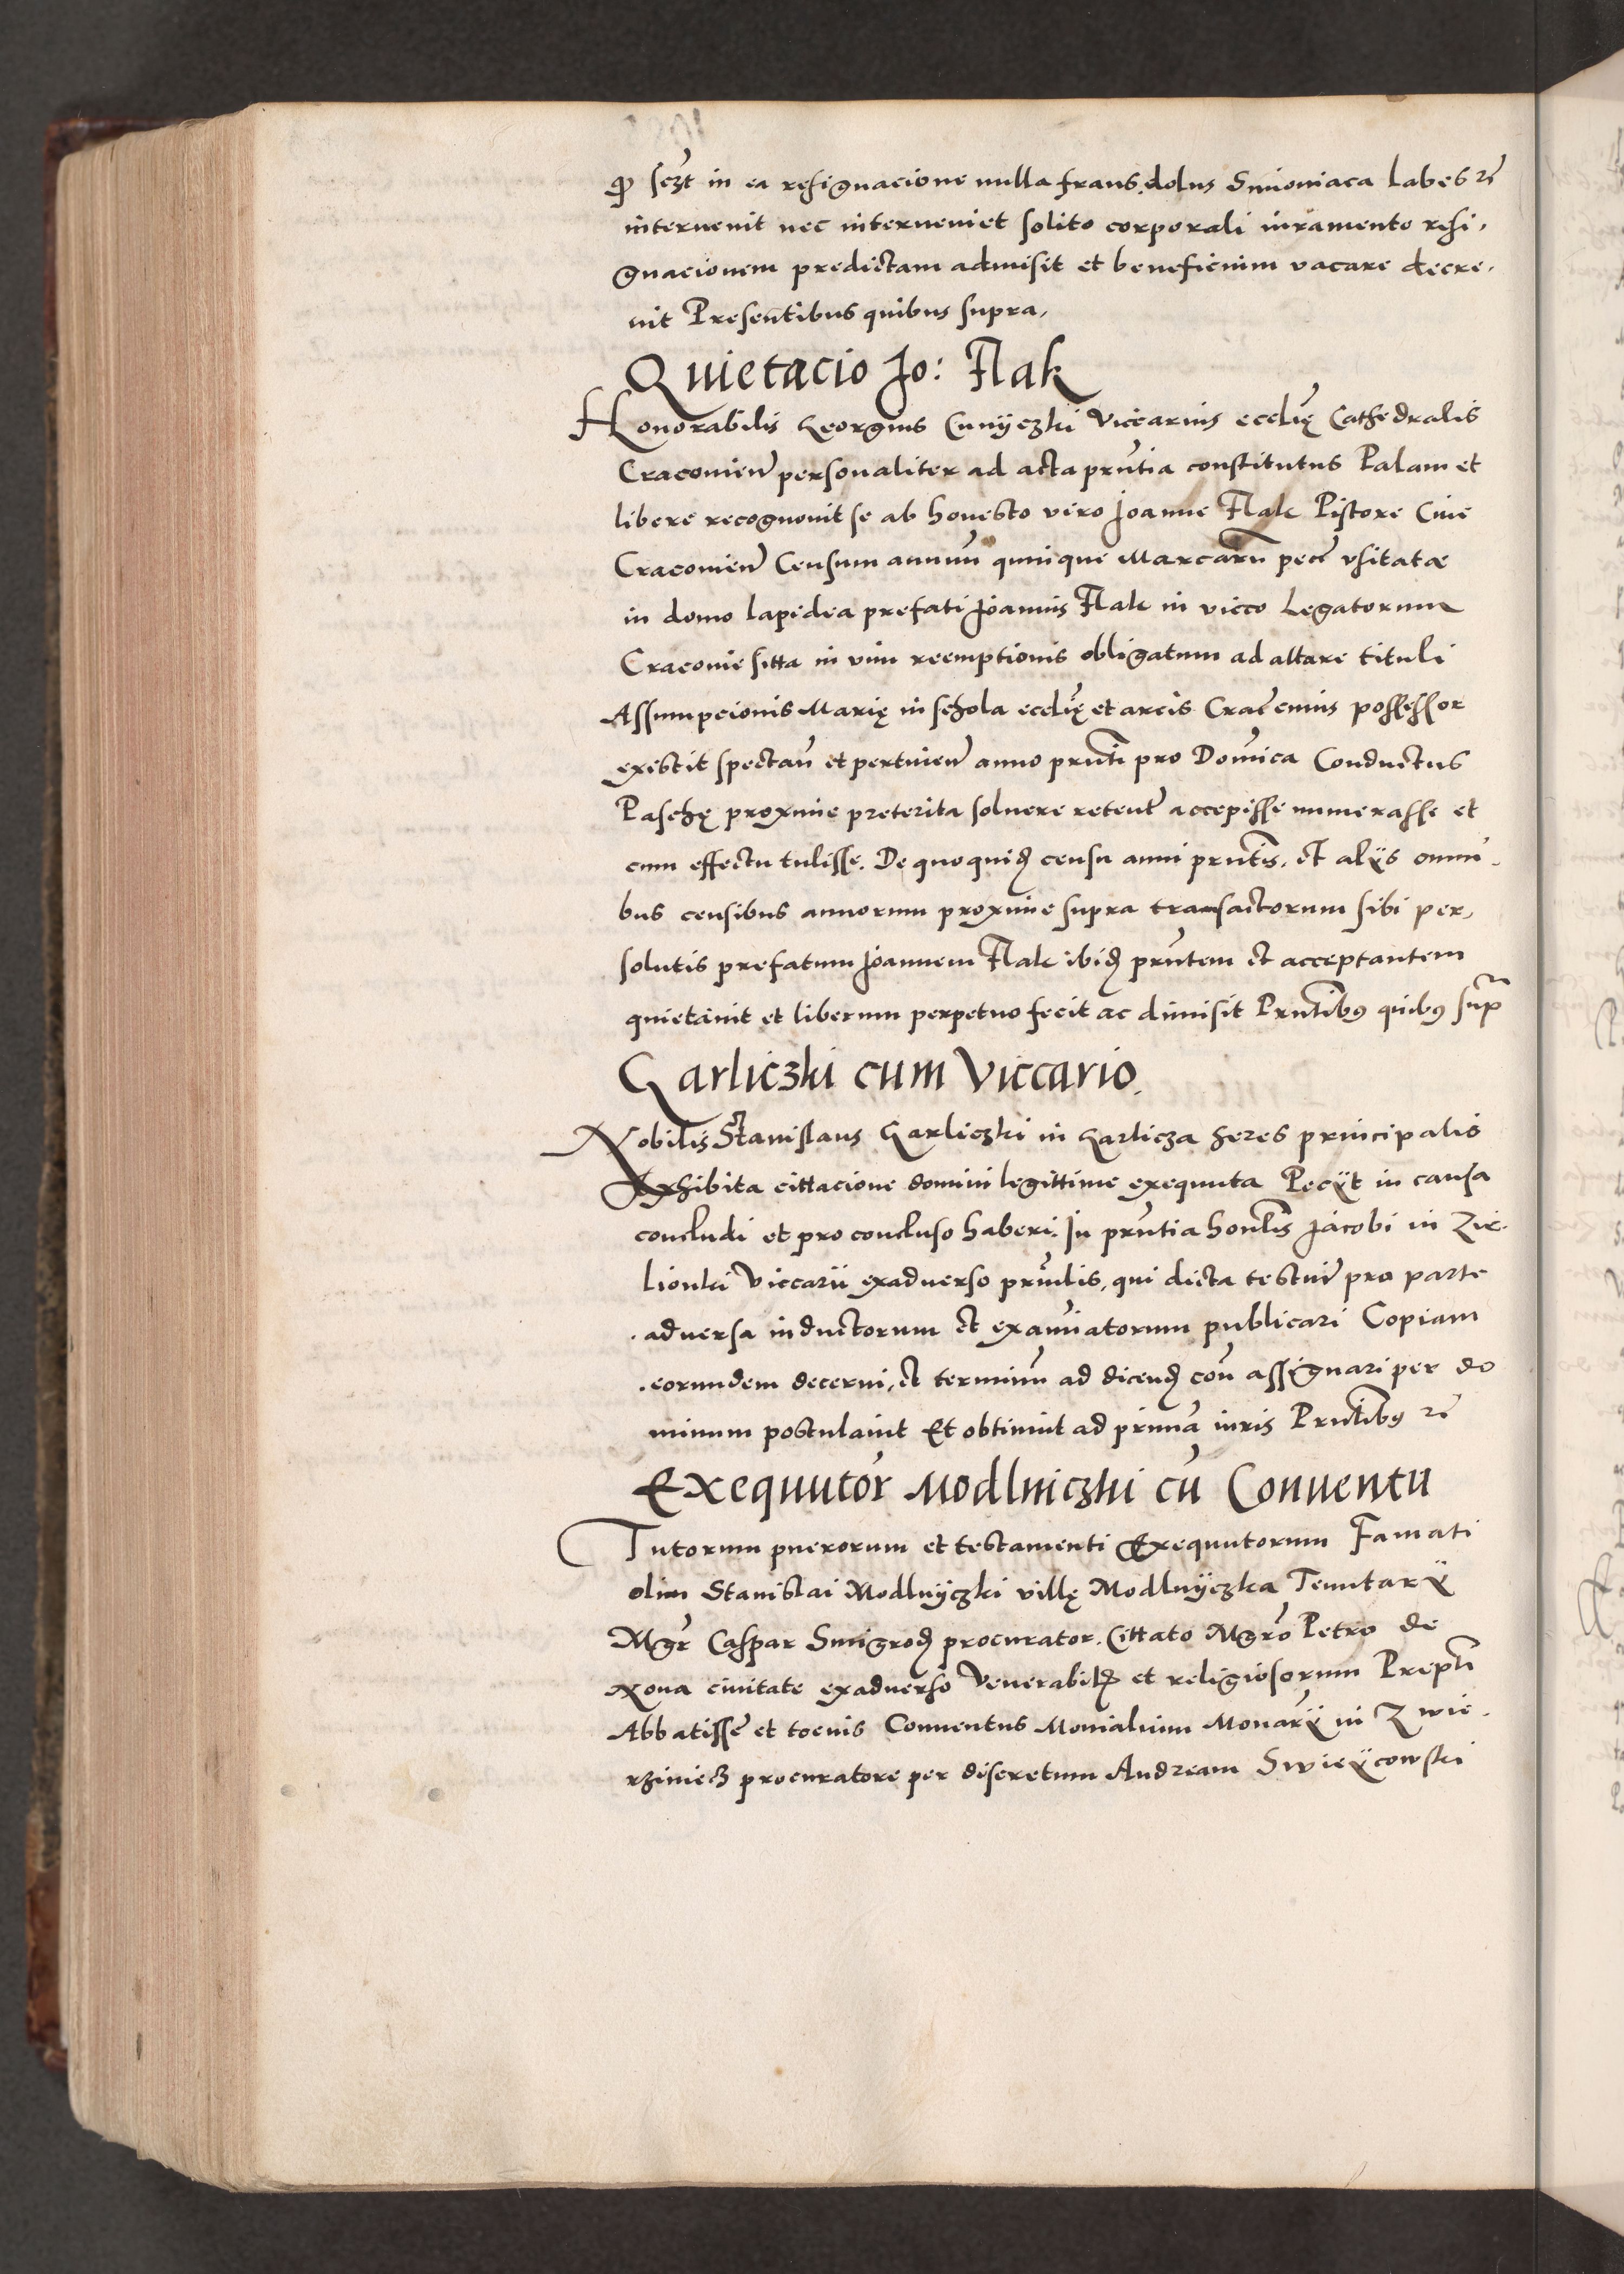 scz̃t in ea resignacione nulla fraus. dolus Simoniaca Labes
interuenit nec interueniet solito corporali iuramento resi,
gnacionem predictam admisit et beneficium vacare decre,
uit Presentibus quibus supra,
Quietacio Jo: Flak
Honorabilis Georgius Cunÿczki Viccarius ecclię Cathedralis
Cracouien̄ personaliter ad acta prn̄tia constitutus Palam et
libere recognouit se ab honesto viro Joanne Flak Pistore Ciue
Cracouien̄ Censum annuū quinque Marcarū pecc̄ vsitatæ
in domo lapidea prefati Joannis Flak in vicco Legatorum
Cracouie sitta in vim reemptionis obligatum ad altare tituli
Assumpcionis Marię in schola ecclię et arcis Crac̄ cuius possessor
existit spectan̄ et pertinen̄ anno prn̄ti pro Domīca Conductus
Paschę proxime preterita soluere retent̄ accepisse numerasse et
cum effectu tulisse. De quo quid̄ censu anni prn̄tis, et alÿs omni-
bus censibus annorum proxime supra transactorum sibi per,
solutis prefatum Joannem Flak ibid̄ prn̄tem et acceptantem
quietauit et liberum perpetuo fecit ac dimisit Prn̄tibꝯ quibꝯ sup̄
Garliczki cum Viccario.
Nobilis Stanislaus Garliczki in Garlicza heres principalis
Exhibita cittacione domini legittime exequuta Peciit in causa
concludi et pro concluso haberi. In prn̄tia honl̄is Jacobi in Zie-
lionki Viccarii exaduerso prin̄lis, qui dicta testiū pro parte
aduersa inductorum et examīatorum publicari Copiam
eorundem decerni, et terminū ad dicend̄ con̄ assignari per do
minum postulauit Et obtinuit ad primā iuris Prn̄tibꝯ
Exequutor Modlniczki cū Conuentu
Tutorum puerorum et testamenti Exequutorum Famati
olim Stanislai Modlnÿczki villę Modlnÿczka Tenutarÿ
Mgr̄ Caspar Smigrod̄ procurator. Cittato Mgr̄o Petro de
Noua ciuitate exaduerso Venerabiliū et religiosorum Prepti
Abbatissē et tocius Conuentus Monialium Monarÿ in Zwie-
rziniecz procuratore per discretum Andream Swieÿcowski